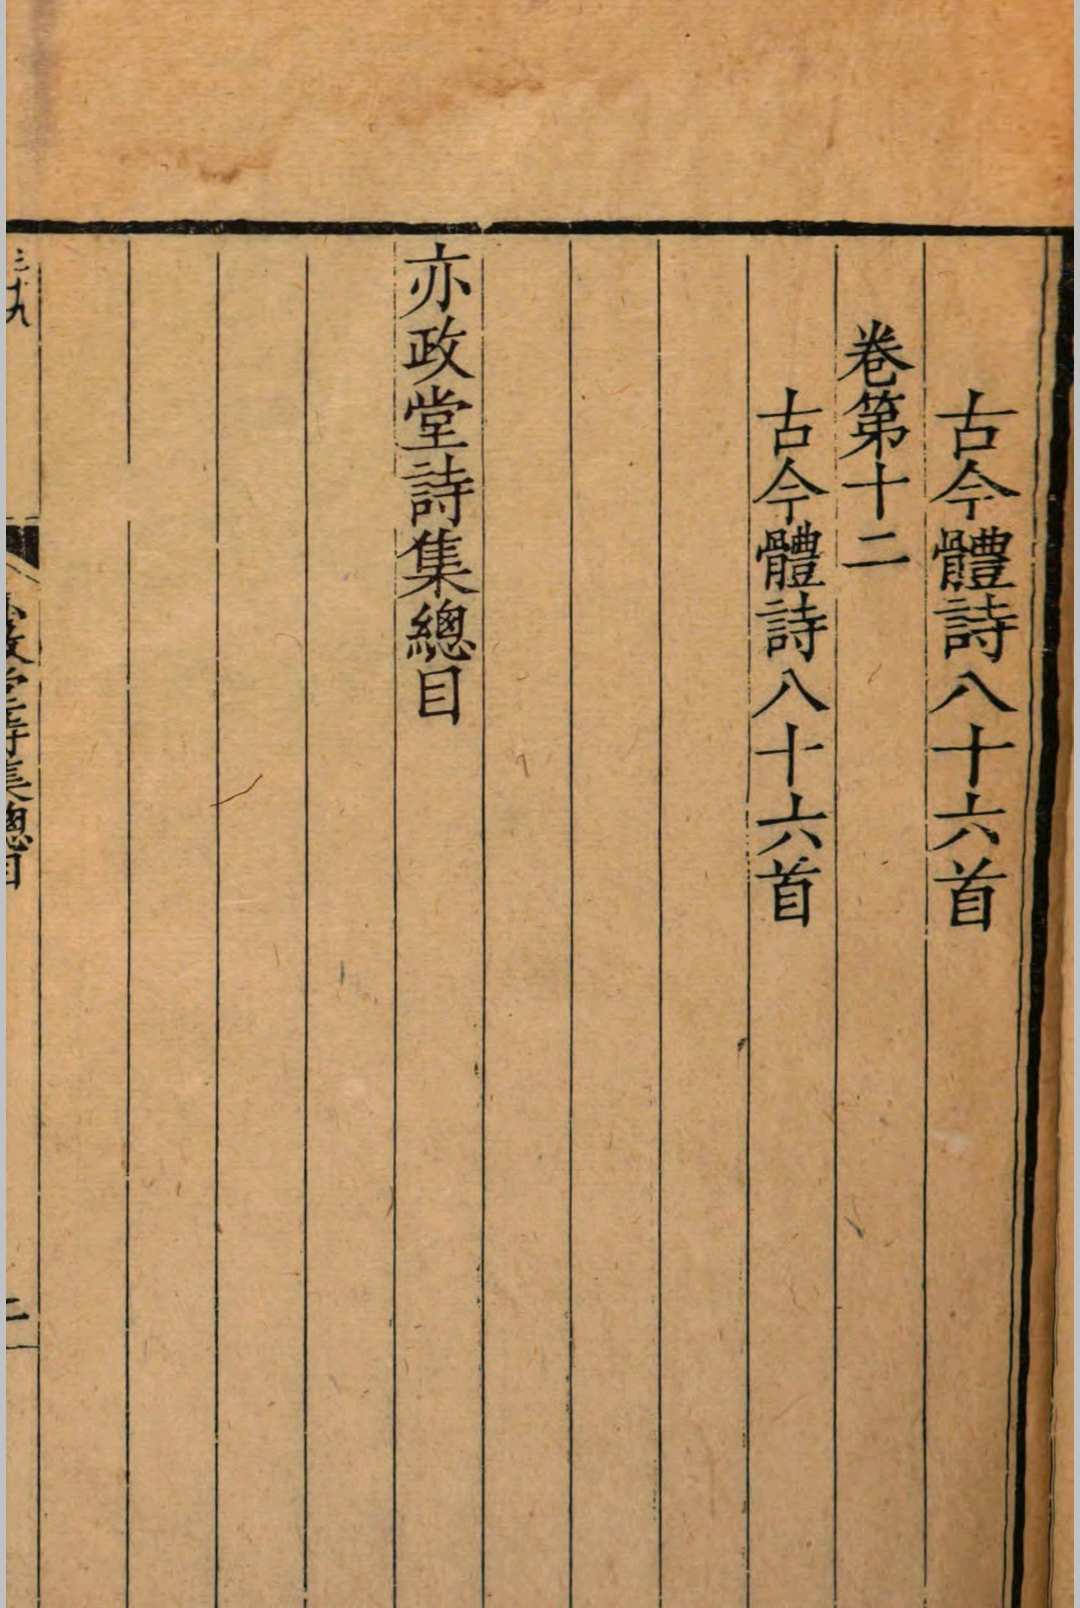 古今體詩八十六首
卷第十二
古今體詩八十六首
亦政堂詩集總目
二